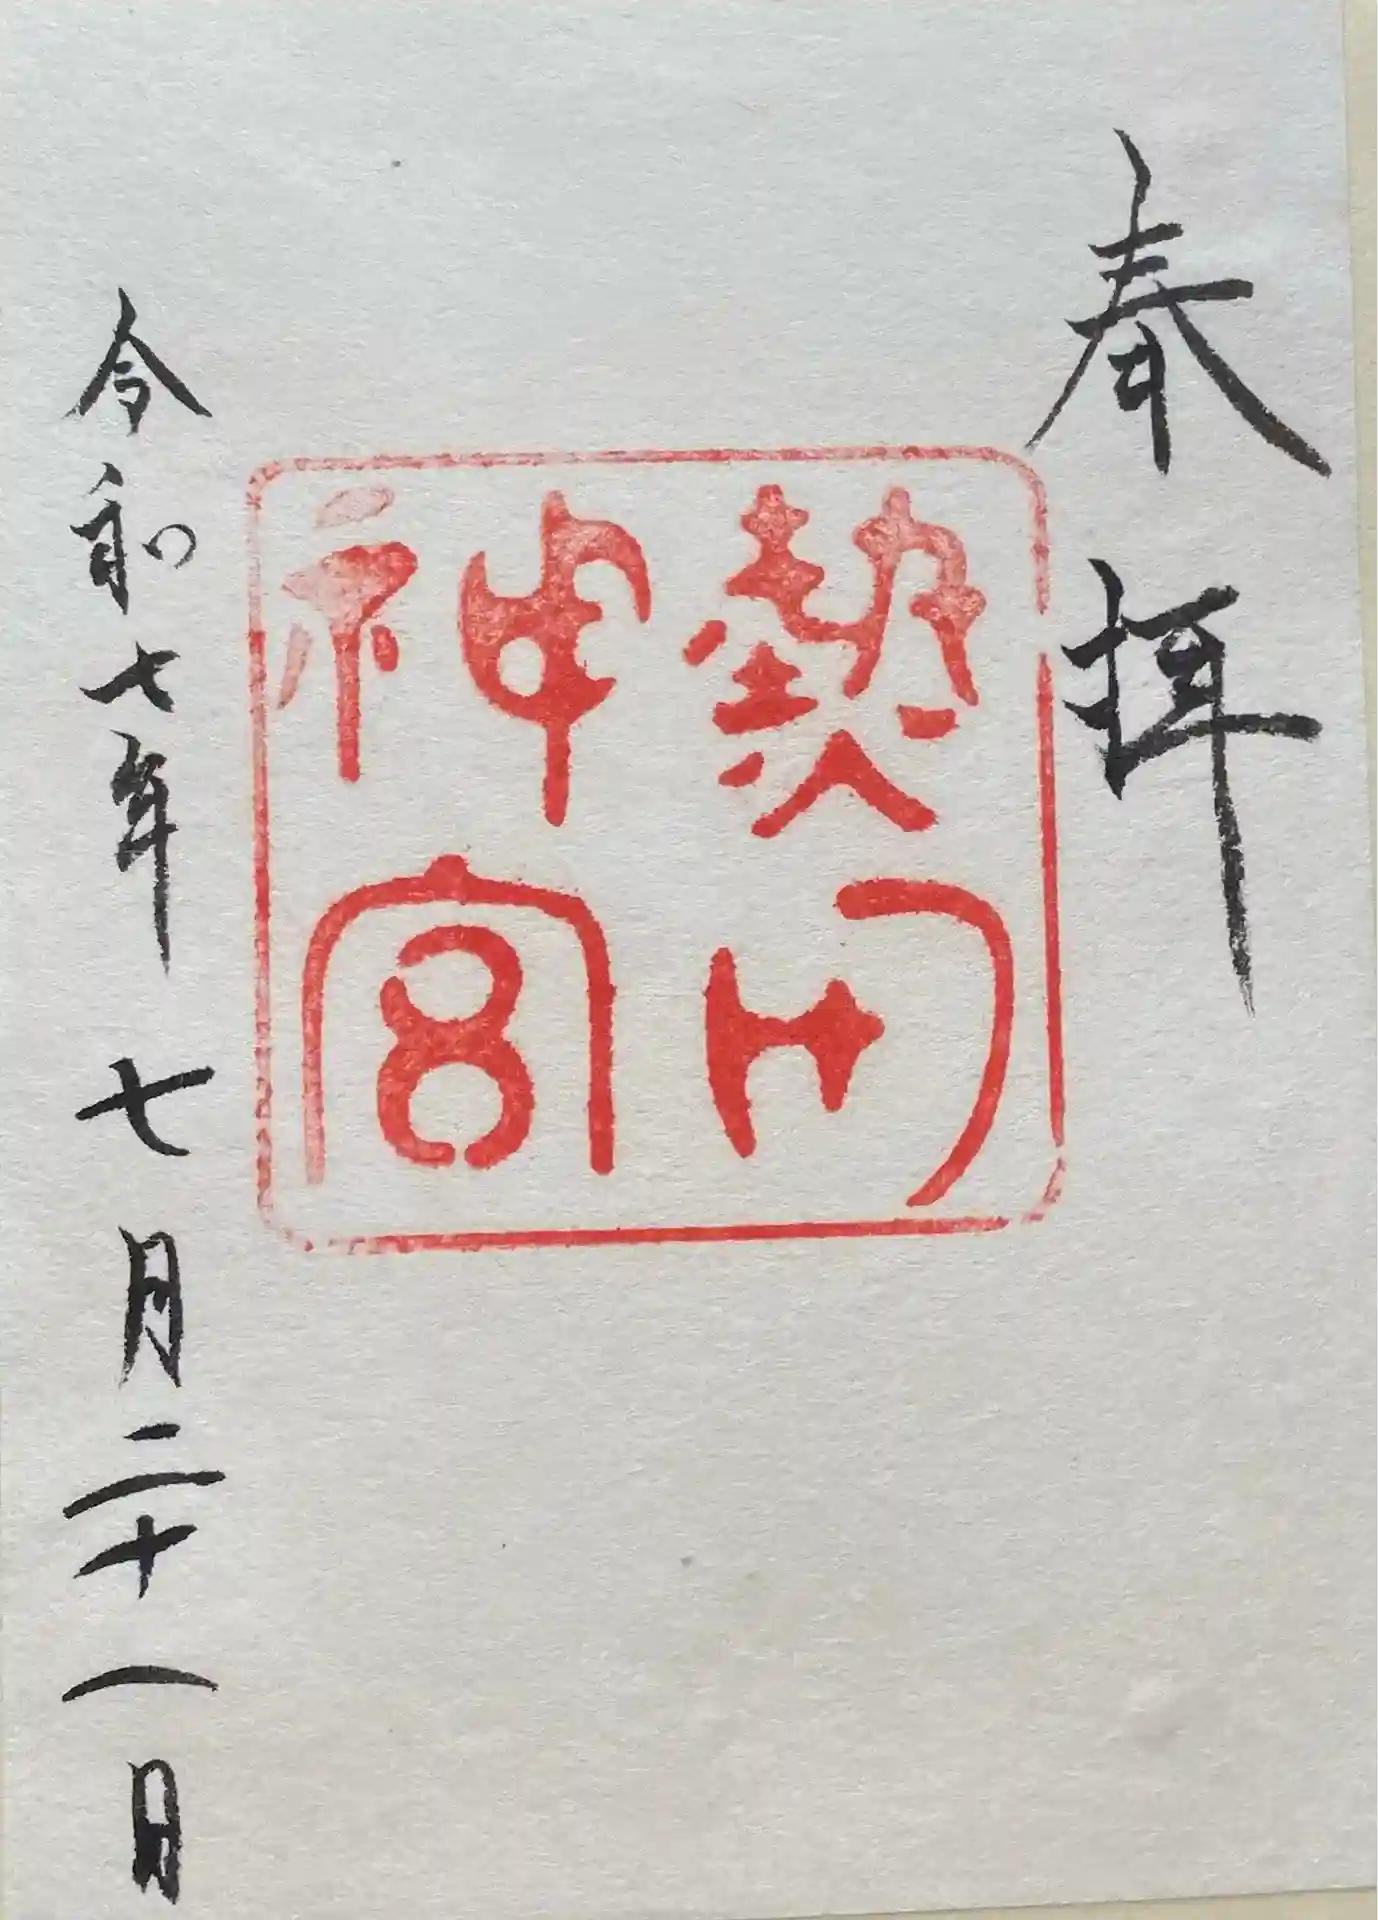 奉拝
熱田
神宮
令和七年七月二十一日